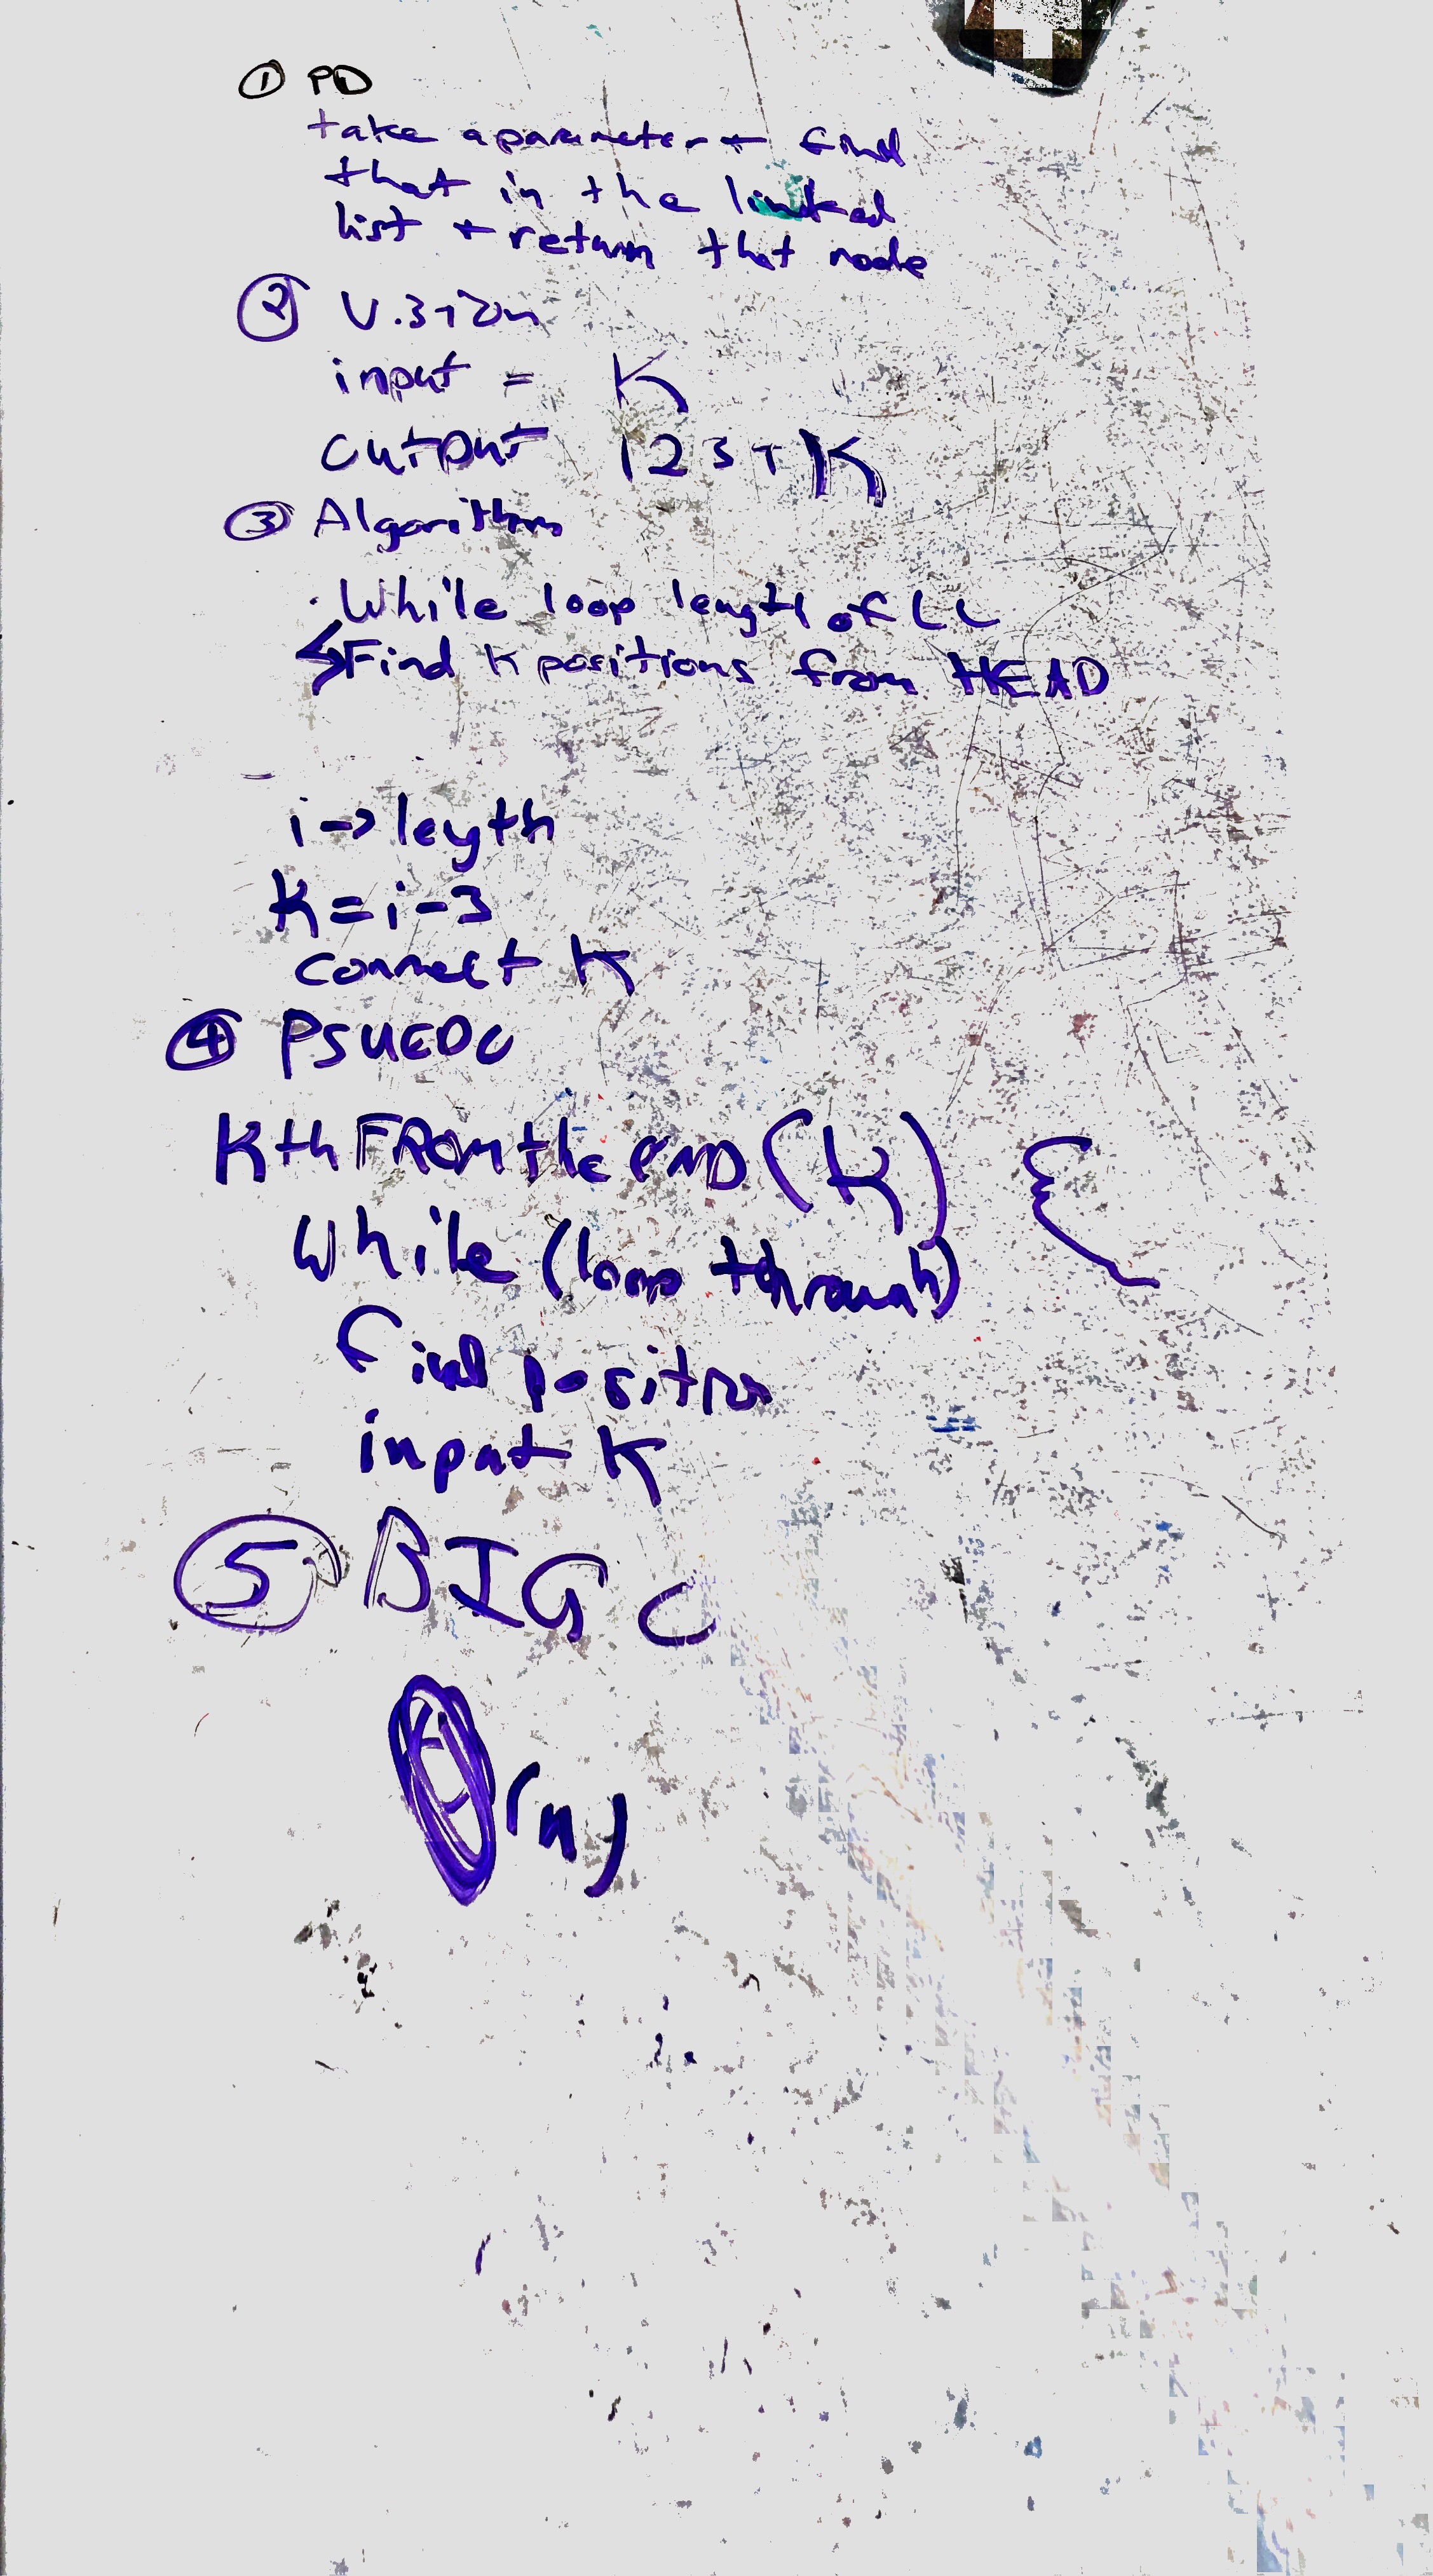 ① PD
take a parameter + find
that in the linked
list + return that node
② Vision
input = K
output 1 2 3 4 K
③ Algorithm
. While loop length of LL
Find K positions from HEAD
i -> length
K = i - 3
connect K
④ PSUEDO
KthFROMtheEND (K) {
While (loop through)
find position
input K
⑤ BIG O
O(n)